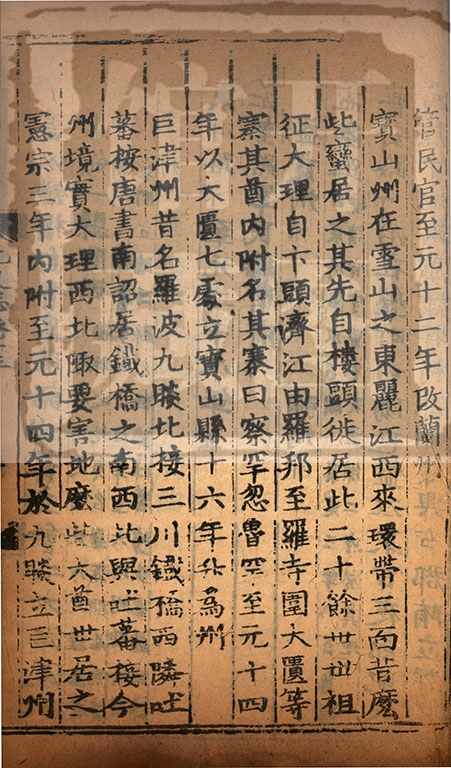 管民官至元十二年改蘭州
寶山州在雪山之東麗江西來環帶三面昔麽
些蠻居之其先自樓頭徙居此二十餘世世祖
征大理自卞頭濟江由羅邦至羅寺圍大匱等
寨其酋内附名其寨曰察罕忽魯罕至元十四
年以大匱七處立寶山縣十六年升為州
巨津州昔名羅波九賧北接三川鐵橋西隣吐
蕃按唐書南詔居鐵橋之南西北與吐蕃接今
州境實大理西北陬要害地麽些大酋世居之
憲宗三年内附至元十四年於九賧立巨津州